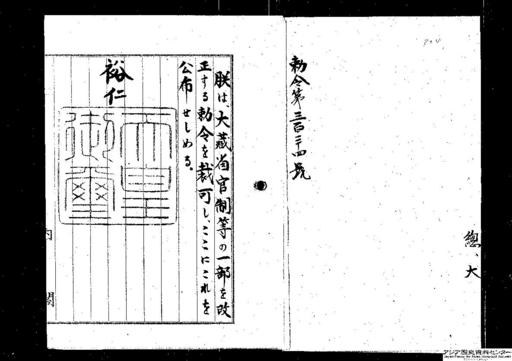 勅令第三百三十四號
總、大
朕は、大藏省官制等の一部を改
正する勅令を裁可し、ここにこれを
公布せしめる。
裕仁
天皇御璽
内閣
アジア歴史資料センター